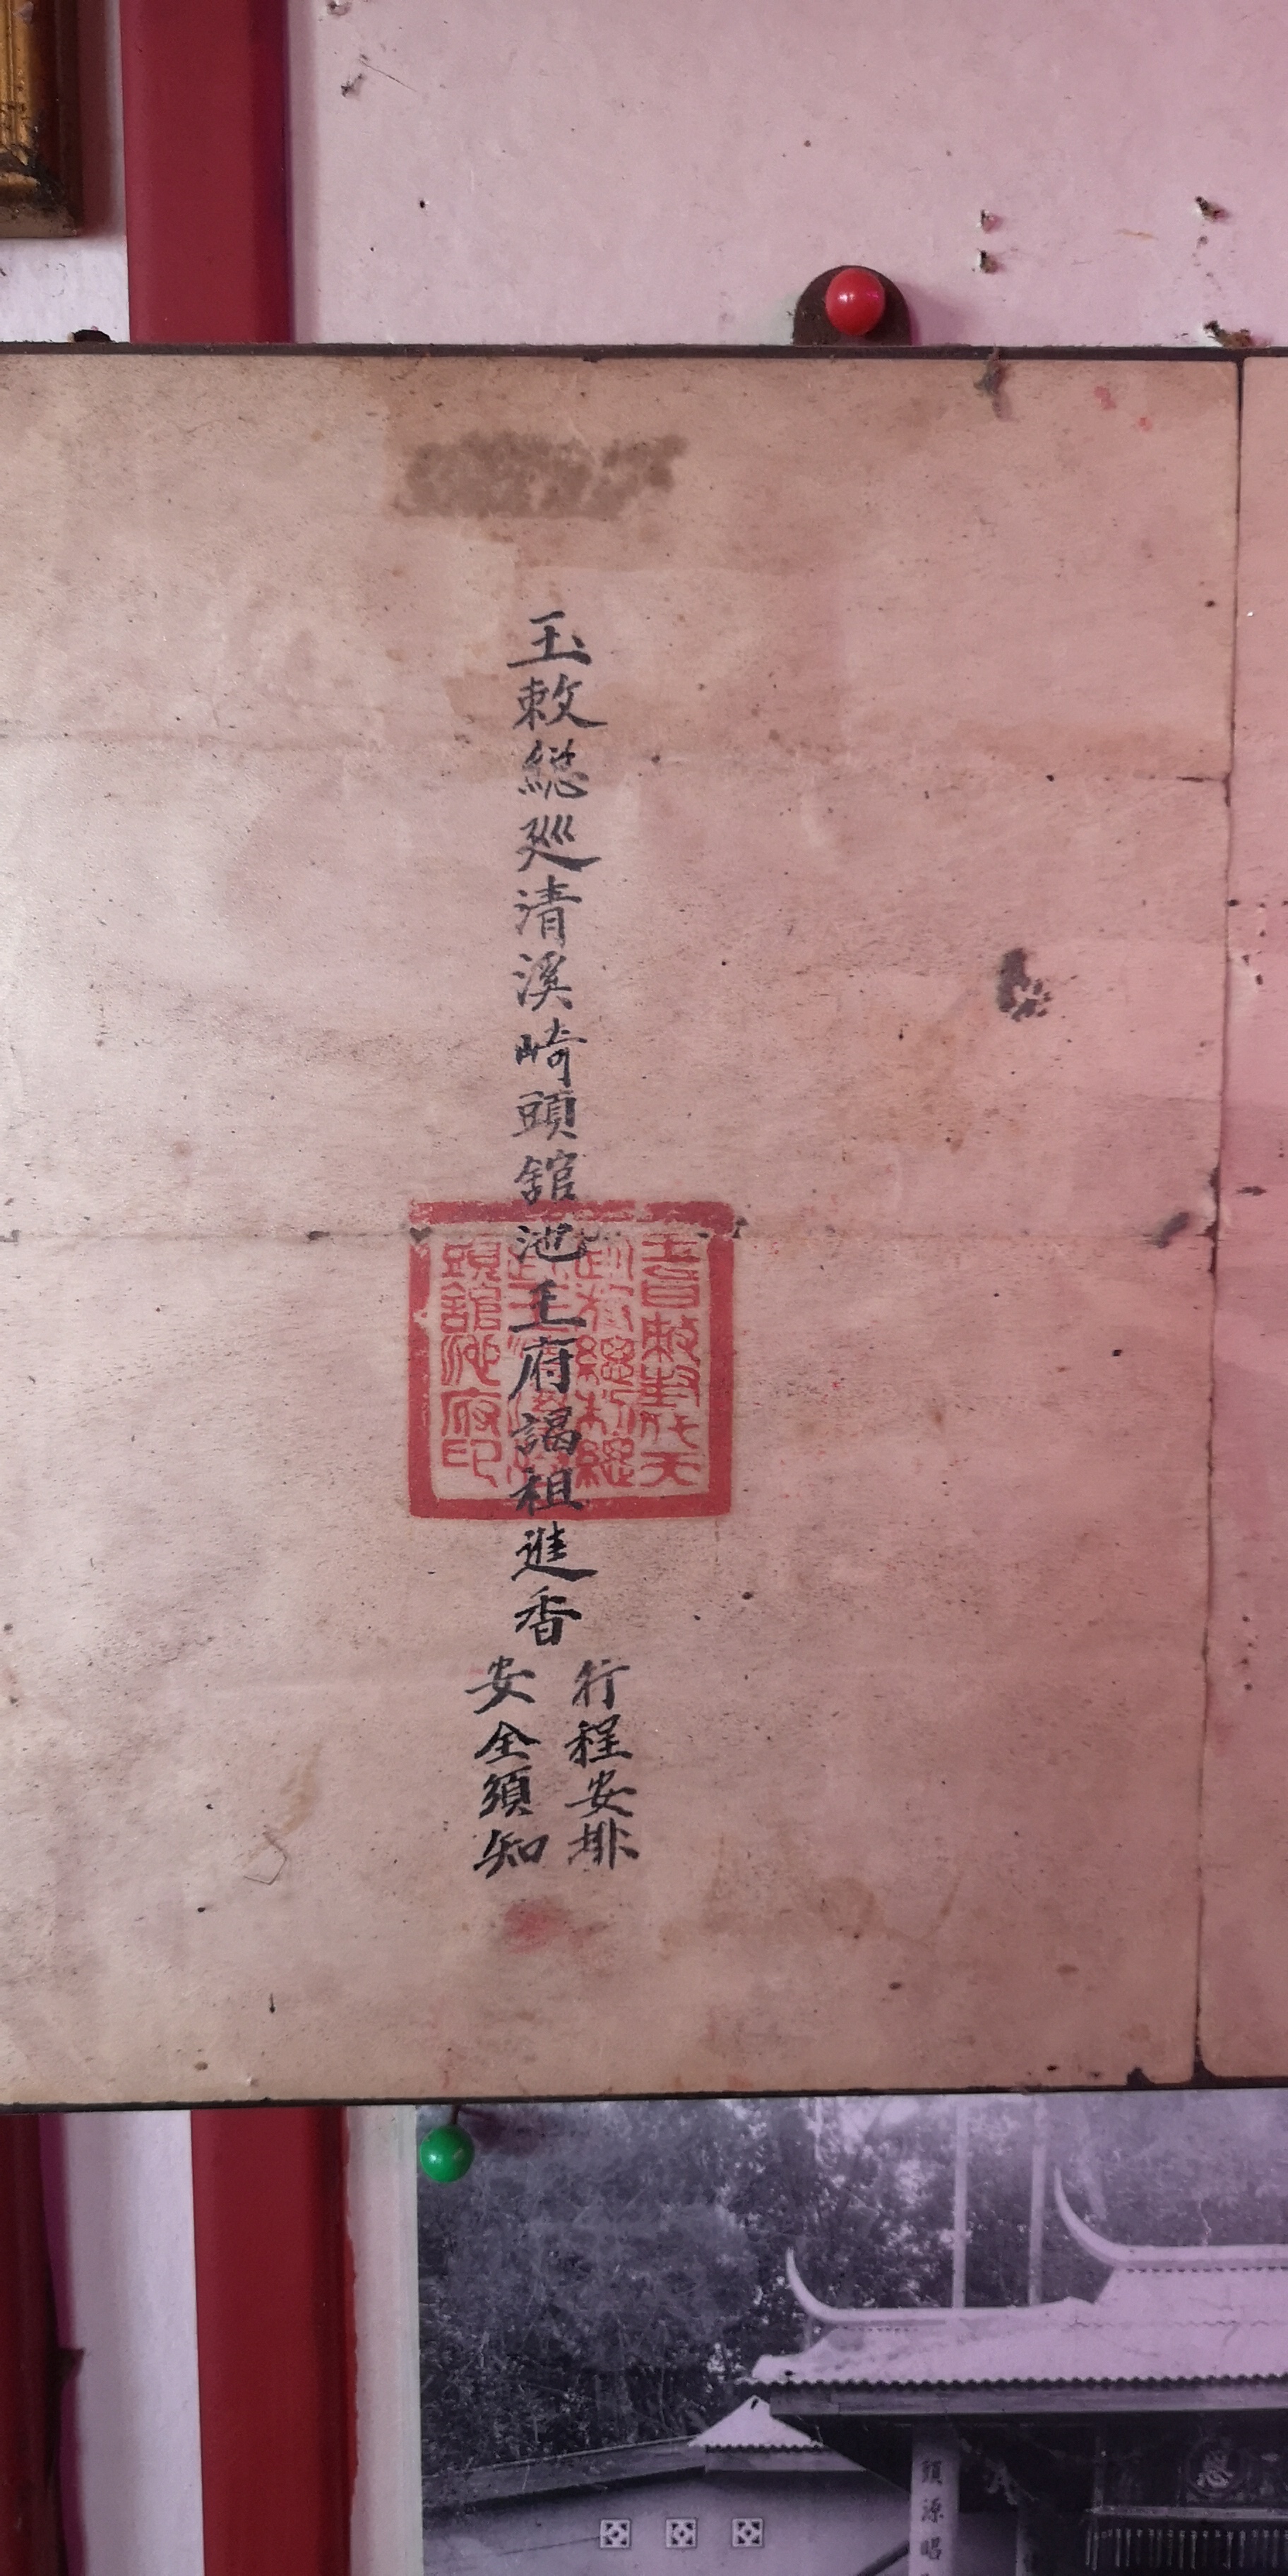 玉敕総廵清溪崎頭舘池王府謁祖進香
行程安排
安全須知
玉旨敕封代天
頭舘池府印
頭源昭